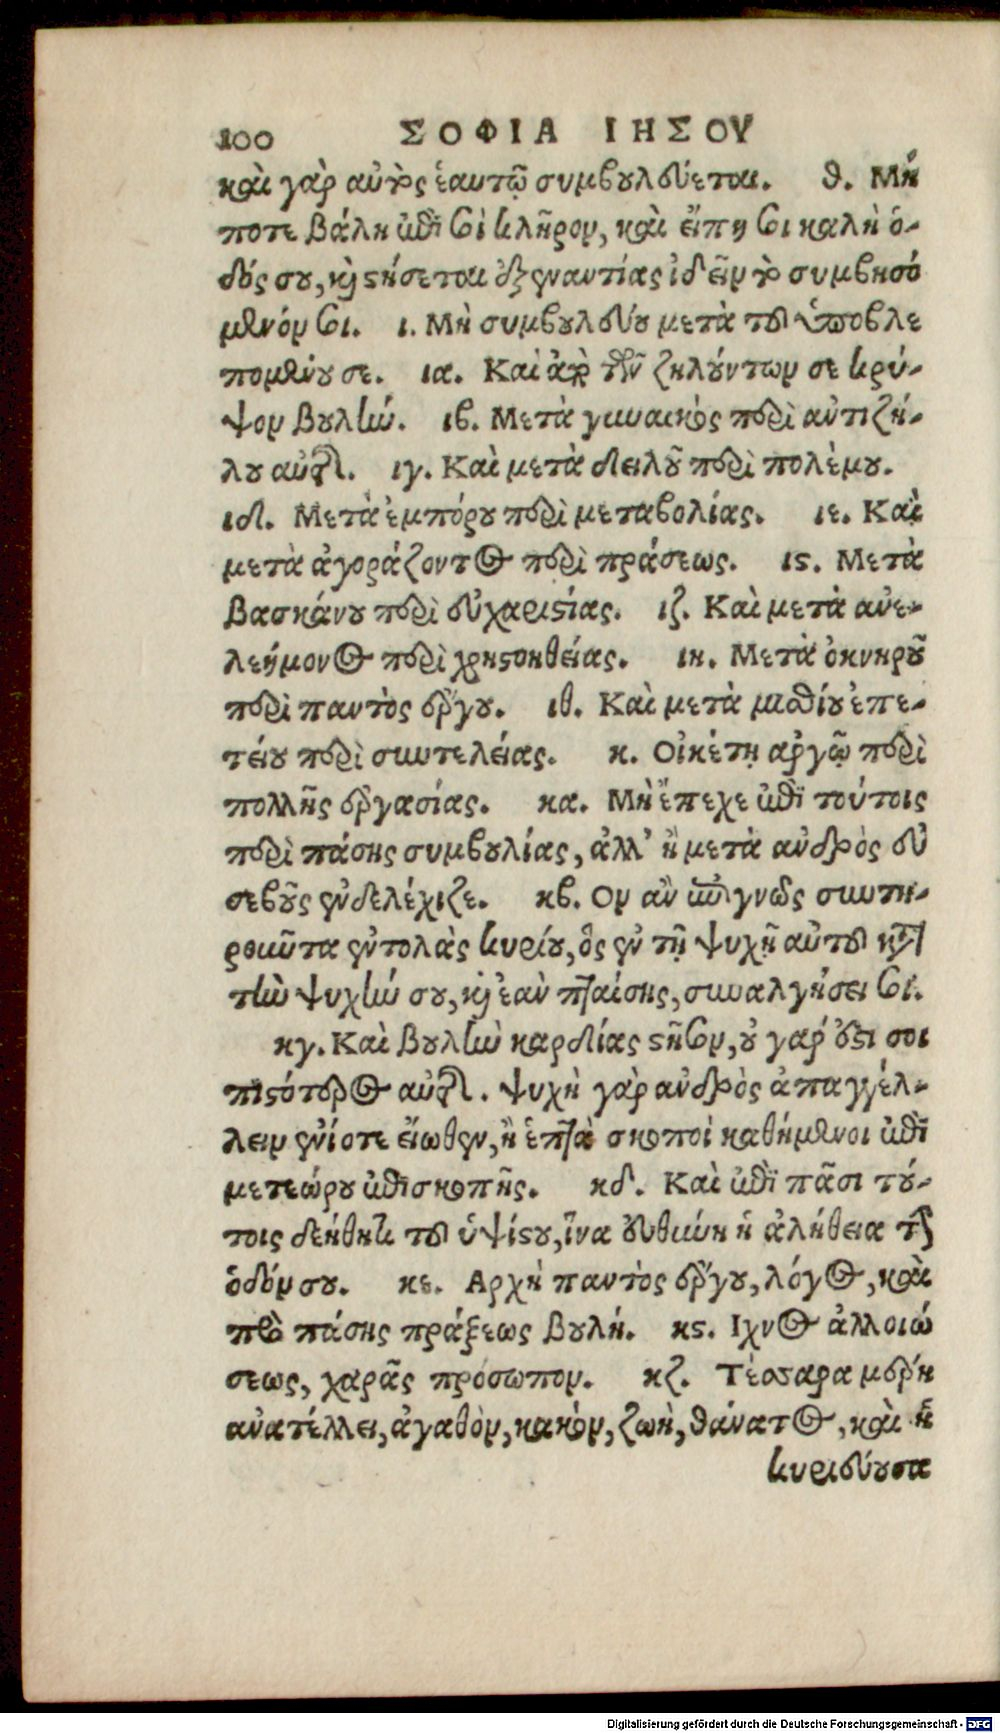 100 ΣΟΦΙΑ ΙΗΣΟΥ
καὶ γὰρ αὐτὸς ἑαυτῷ συμβουλεύεται. θ. Μή
ποτε βάλῃ ἐπὶ σοὶ κλῆρον, καὶ εἴπῃ σοι καλὴ ὁ-
δός σου, καὶ στήσεται ἐξεναντίας ἰδεῖν τὸ συμβησό
μενόν σοι. ι. Μὴ συμβουλεύου μετὰ τοῦ ὑποβλε
πομένου σε. ια. Καὶ ἀπὸ τῶν ζηλούντων σε κρύ-
ψον βουλήν. ιβ. Μετὰ γυναικὸς περὶ ἀντιζή-
λου αὐτῆς. ιγ. Καὶ μετὰ δειλοῦ περὶ πολέμου.
ιδ. Μετὰ ἐμπόρου περὶ μεταβολίας. ιε. Καὶ
μετὰ ἀγοράζοντος περὶ πράσεως. ις. Μετὰ
βασκάνου περὶ εὐχαριστίας. ιζ. Καὶ μετὰ ἀνε-
λεήμονος περὶ χρηστοηθείας. ιη. Μετὰ ὀκνηροῦ
περὶ παντὸς ἔργου. ιθ. Καὶ μετὰ μισθίου ἐπε-
τείου περὶ συντελείας. κ. Οἰκέτῃ ἀργῷ περὶ
πολλῆς ἐργασίας. κα. Μὴ ἔπεχε ἐπὶ τούτοις
περὶ πάσης συμβουλίας, ἀλλ' ἢ μετὰ ἀνδρὸς εὐ
σεβοῦς ἐνδελέχιζε. κβ. Ον ἂν ἐπιγνῶς συντη-
ροῦντα ἐντολὰς κυρίου, ὃς ἐν τῇ ψυχῇ αὐτοῦ κατὰ
τὴν ψυχήν σου, καὶ ἐὰν πταίσῃς, συναλγήσει σοι.
κγ. Καὶ βουλὴν καρδίας στῆσον, οὐ γάρ ἐστι σοι
πιστότερος αὐτῆς. ψυχὴ γὰρ ἀνδρὸς ἀπαγγέλ-
λειν ἐνίοτε εἴωθεν, ἢ ἑπτὰ σκοποὶ καθήμενοι ἐπὶ
μετεώρου ἐπὶ σκοπῆς. κδ. Καὶ ἐπὶ πᾶσι τού-
τοις δεήθητι τοῦ ὑψίστου, ἵνα εὐθύνῃ ἡ ἀλήθεια τὴν
ὁδόν σου. κε. Αρχὴ παντὸς ἔργου, λόγος, καὶ
πρὸ πάσης πράξεως βουλή. κς. Ιχνος ἀλλοιώ
σεως, χαρᾶς πρόσωπον. κζ. Τέσσαρα μέρη
ἀνατέλλει, ἀγαθὸν, κακὸν, ζωὴ, θάνατος, καὶ ἡ
κυριεύουσα
Digitalisierung gefördert durch die Deutsche Forschungsgemeinschaft - DFG